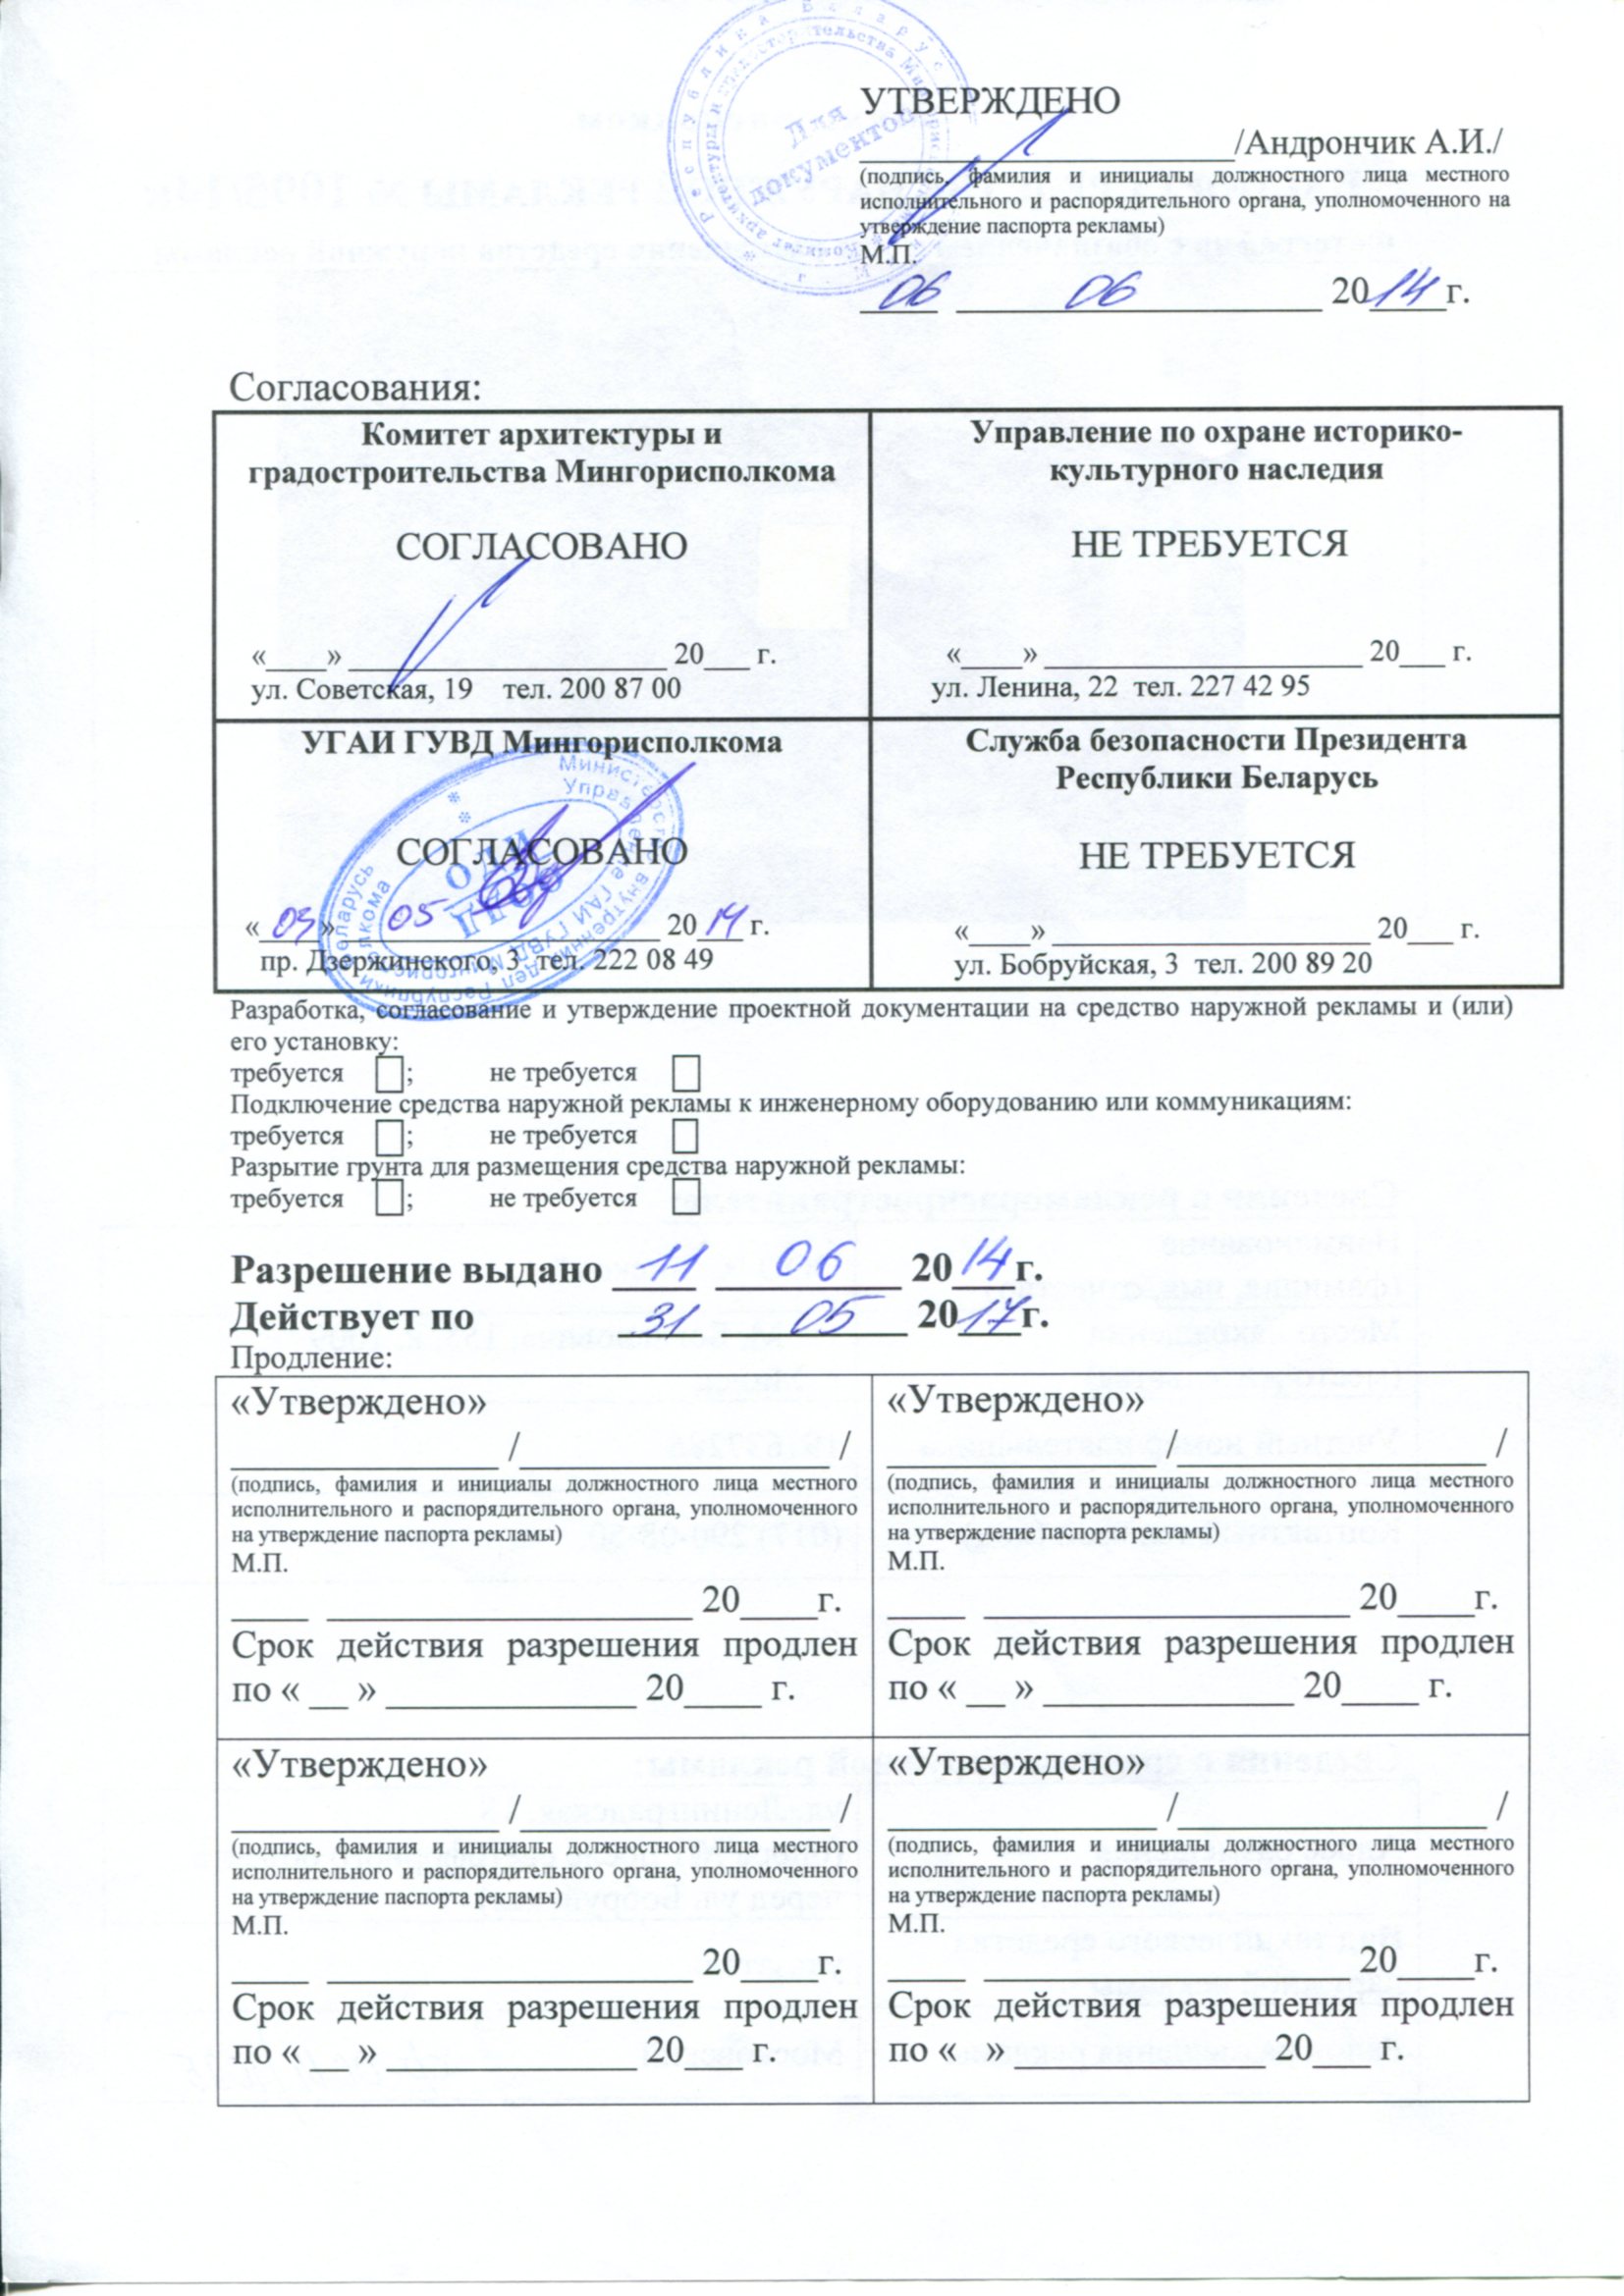 УТВЕРЖДЕНО
____________________/Андрончик А.И./
(подпись, фамилия и инициалы должностного лица местного
исполнительного и распорядительного органа, уполномоченного на
утверждение паспорта рекламы)
М.П.
06 06 2014г.
Для
документов
Согласования:
Комитет архитектуры и
градостроительства Мингорисполкома
СОГЛАСОВАНО
«____» ____________________ 20___ г.
ул. Советская, 19 тел. 200 87 00
Управление по охране историко-
культурного наследия
НЕ ТРЕБУЕТСЯ
«____» ____________________ 20___ г.
ул. Ленина, 22 тел. 227 42 95
УГАИ ГУВД Мингорисполкома
СОГЛАСОВАНО
« » 05 2014 г.
пр. Дзержинского, 3 тел. 222 08 49
Служба безопасности Президента
Республики Беларусь
НЕ ТРЕБУЕТСЯ
«____» ____________________ 20___ г.
ул. Бобруйская, 3 тел. 200 89 20
Разработка, согласование и утверждение проектной документации на средство наружной рекламы и (или)
его установку:
требуется ; не требуется
Подключение средства наружной рекламы к инженерному оборудованию или коммуникациям:
требуется ; не требуется
Разрытие грунта для размещения средства наружной рекламы:
требуется ; не требуется
Разрешение выдано 11 06 2014г.
Действует по 31 05 2017г.
Продление:
«Утверждено»
______________ /________________ /
(подпись, фамилия и инициалы должностного лица местного
исполнительного и распорядительного органа, уполномоченного
на утверждение паспорта рекламы)
М.П.
____ ___________________ 20____г.
Срок действия разрешения продлен
по « __ » _____________ 20____ г.
«Утверждено»
______________ /________________ /
(подпись, фамилия и инициалы должностного лица местного
исполнительного и распорядительного органа, уполномоченного
на утверждение паспорта рекламы)
М.П.
____ ___________________ 20____г.
Срок действия разрешения продлен
по « __ » _____________ 20____ г.
«Утверждено»
______________ /________________ /
(подпись, фамилия и инициалы должностного лица местного
исполнительного и распорядительного органа, уполномоченного
на утверждение паспорта рекламы)
М.П.
____ ___________________ 20____г.
Срок действия разрешения продлен
по « __ » _____________ 20___ г.
«Утверждено»
______________ /________________ /
(подпись, фамилия и инициалы должностного лица местного
исполнительного и распорядительного органа, уполномоченного
на утверждение паспорта рекламы)
М.П.
____ ___________________ 20____г.
Срок действия разрешения продлен
по « »_____________ 20___ г.